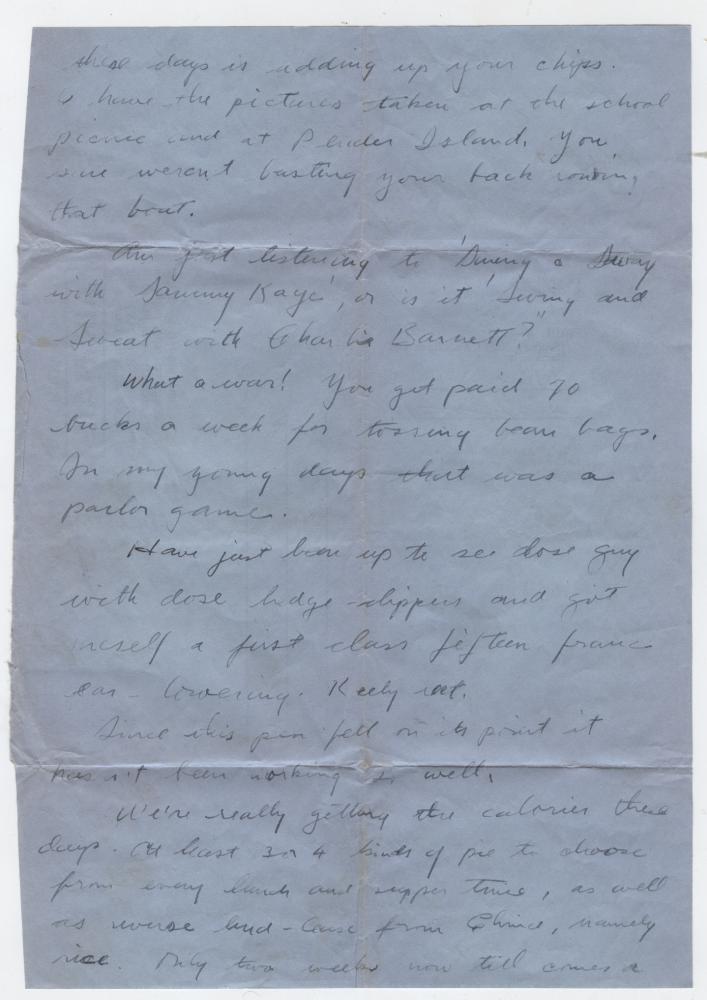 these days is adding up your chips.
I have the pictures taken at the school
picnic and at Pender Island. You
sure weren't busting your back rowing
that boat.
Am just listening to 'Swing a Sway
with Sammy Kaye', or is it 'Swing and
Sweat with Charlie Barnett?'
What a war! You get paid 70
bucks a week for tossing bean bags.
In my young days that was a
parlor game.
Have just been up to see dose guy
with dose hedge-clippers and got
meself a first class fifteen franc
ear-lowering. Reely reet.
Since this pen fell on its point it
hasn't been working so well.
We're really getting the calories these
days. At least 3 or 4 kinds of pie to choose
from every lunch and supper time, as well
as reverse lend-lease from China, namely
rice. Only two weeks now till comes a